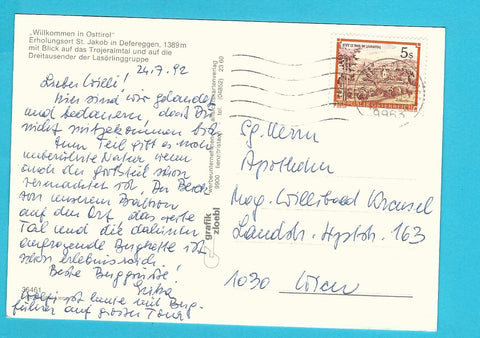 „Willkommen in Osttirol"
Erholungsort St. Jakob in Defereggen, 1389m
mit Blick auf das Trojeralmtal und auf die
Dreitausender der Lasörlinggruppe
24.7.92
Lieber Willi!
Hier sind wir gelandet
und bedauern, dass Du
nicht mitgekommen bist.
Zum Teil gibt es noch
unberührte Natur, wenn
auch der Großteil schon
vermarktet ist. Der Blick
von unserem Balkon
auf den Ort, das weite
Tal und die dahinter
emporragende Bergkette ist
schon erlebnisreich.
Beste Berggrüße!
36461
ist heute mit Berg-
führer auf großer Tour
grafik
zloebl
9900 lienz/tristach tel. (04852) 23 60
5s
REPUBLIK ÖSTERREICH
9963
Sg. Herrn
Apotheker
Mag. Willibald
Landstr. Hptstr. 163
1030 Wien